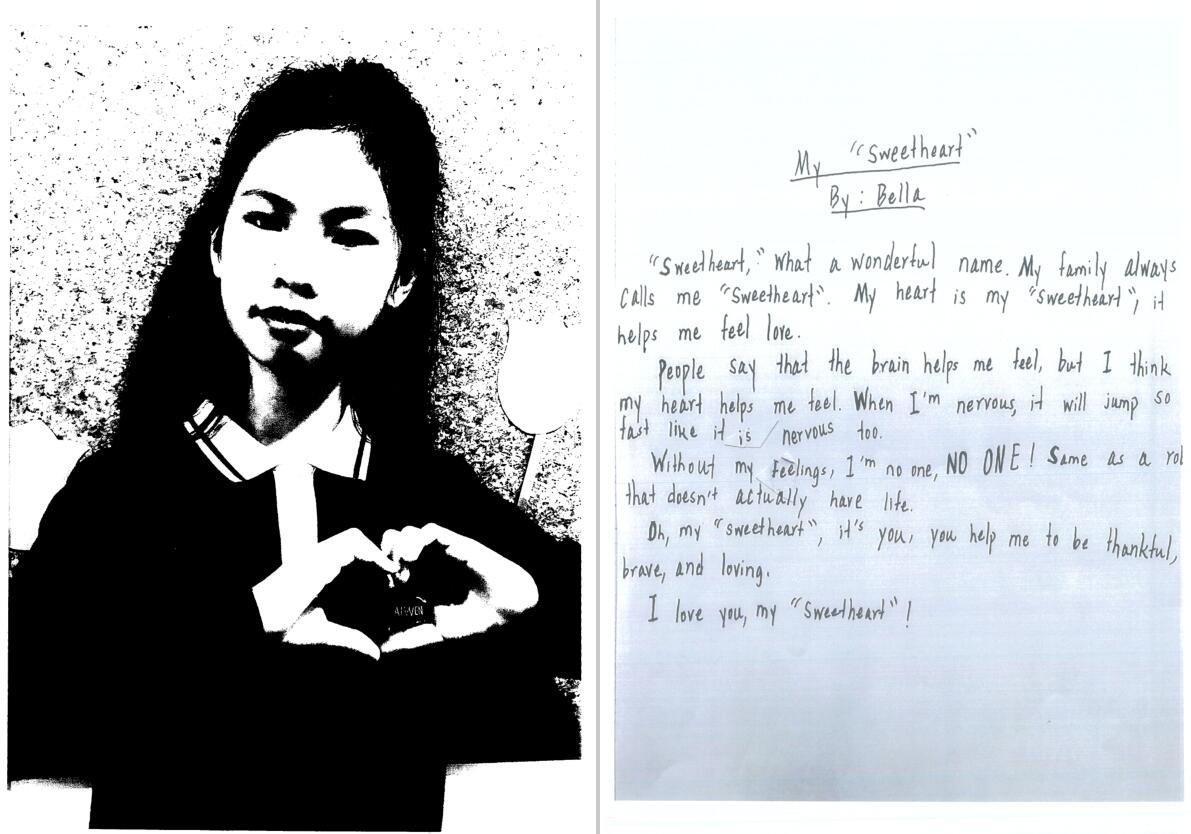 My "Sweetheart"
By: Bella
"Sweetheart," What a wonderful name. My family always
calls me "Sweetheart". My heart is my "sweetheart", it
helps me feel love.
People say that the brain helps me feel, but I think
my heart helps me feel. When I'm nervous, it will jump so
fast like it is nervous too.
Without my feelings, I'm no one, NO ONE! Same as a
that doesn't actually have life.
Oh, my "sweetheart", it's you, you help me to be thankful,
brave, and loving.
I love you, my "Sweetheart"!